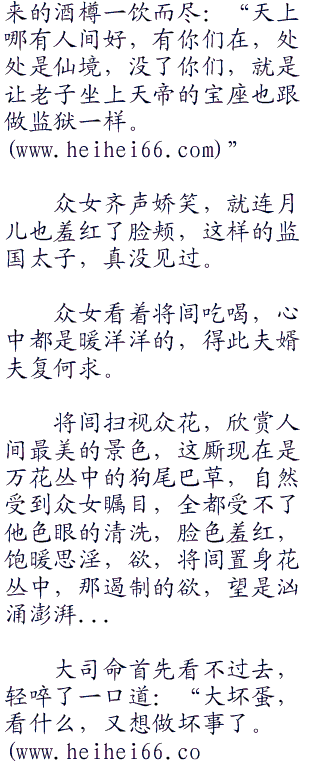 来的酒樽一饮而尽：“天上
哪有人间好，有你们在，处
处是仙境，没了你们，就是
让老子坐上天帝的宝座也跟
做监狱一样。
(www.heihei66.com)”
众女齐声娇笑，就连月
儿也羞红了脸颊，这样的监
国太子，真没见过。
众女看着将闾吃喝，心
中都是暖洋洋的，得此夫婿
夫复何求。
将闾扫视众花，欣赏人
间最美的景色，这厮现在是
万花丛中的狗尾巴草，自然
受到众女瞩目，全都受不了
他色眼的清洗，脸色羞红，
饱暖思淫，欲，将闾置身花
丛中，那遏制的欲，望是汹
涌澎湃...
大司命首先看不过去，
轻啐了一口道：“大坏蛋，
看什么，又想做坏事了。
(www.heihei66.co